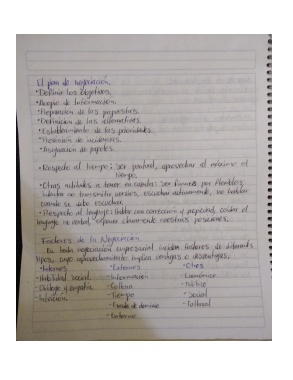 El plan de negociación.
• Definir los objetivos.
• Acopio de Información.
• Preparación de las propuestas.
• Definición de las alternativas.
• Establecimiento de las prioridades.
• Previsión de incidencias.
• Asignación de papeles.
• Respecto al tiempo: ser puntual, aprovechar al máximo el
tiempo.
• Otras actitudes a tener en cuenta: ser firmes pero flexibles,
transmitir serios, escuchar activamente, no hablar
cuando se debe escuchar.
• Respecto al lenguaje: hablar con corrección y propiedad, cuidar el
lenguaje no verbal, exponer claramente nuestras posiciones.
Factores de la Negociación
En toda negociación empresarial inciden factores de diferentes
tipos, cuyo aprovechamiento implica ventajas o desventajas.
• Internos • Externos • Otros
- Habilidad social - Información - Económico
- Diálogo y empatía - Cultura - Político
- Intuición - Tiempo - Social
- Grado de dominio - Cultural
- Entorno